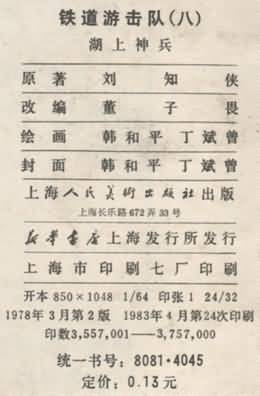 铁道游击队(八)
湖上神兵
原著 刘知侠
改编 董子畏
绘画 韩和平 丁斌曾
封面 韩和平 丁斌曾
上海人民美术出版社出版
上海长乐路672弄33号
新华书店上海发行所发行
上海市印刷七厂印刷
开本 850×1048 1/64 印张 1 24/32
1978年3月第2版 1983年4月第24次印刷
印数3,557,001——3,757,000
统一书号:8081·4045
定价:0.13元